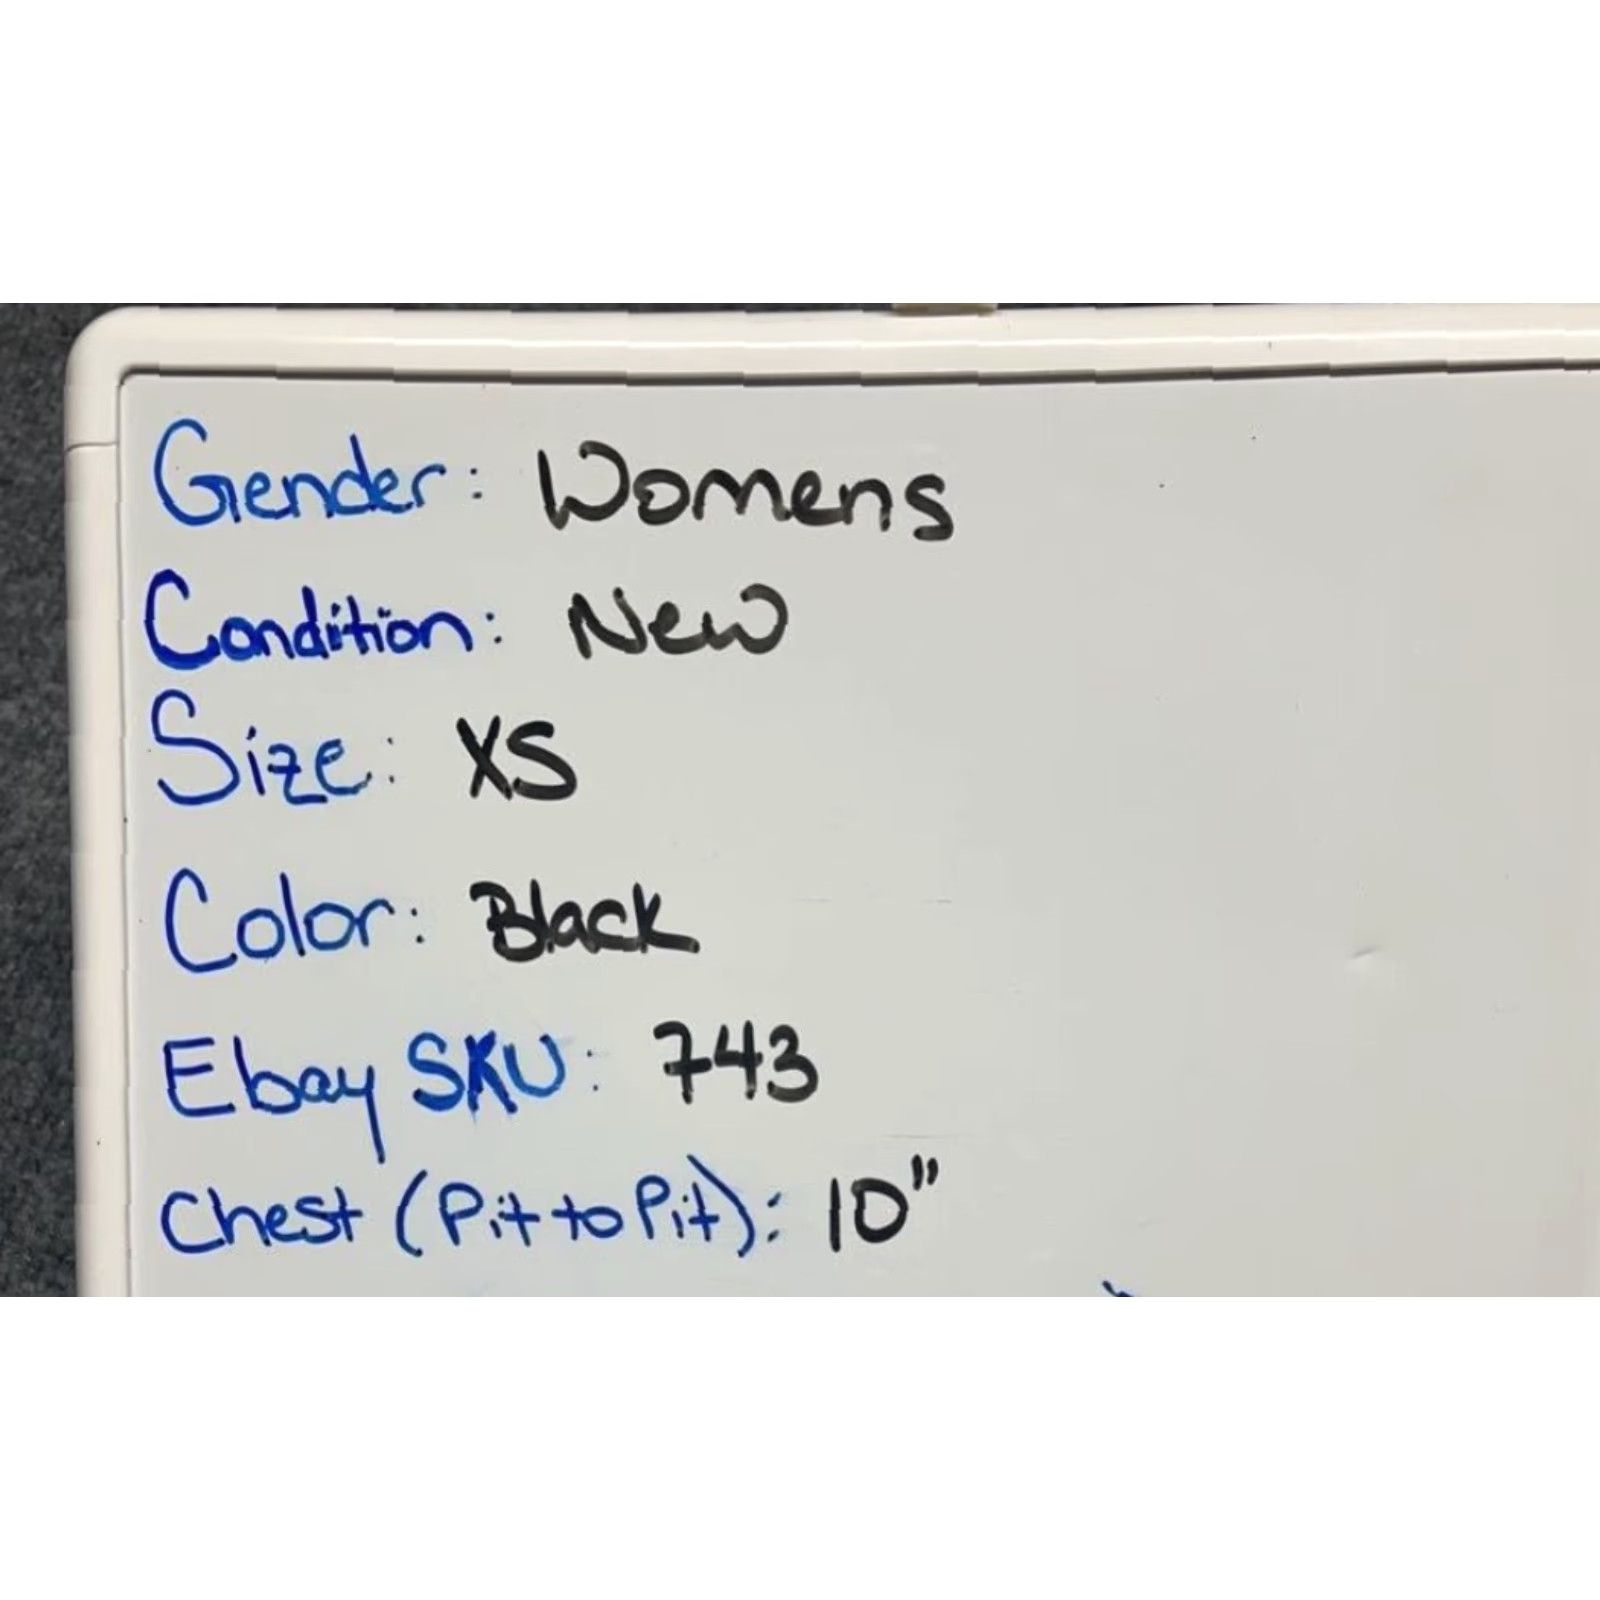 Gender: Womens
Condition: New
Size: XS
Color: Black
Ebay SKU: 743
Chest (Pit to Pit): 10"